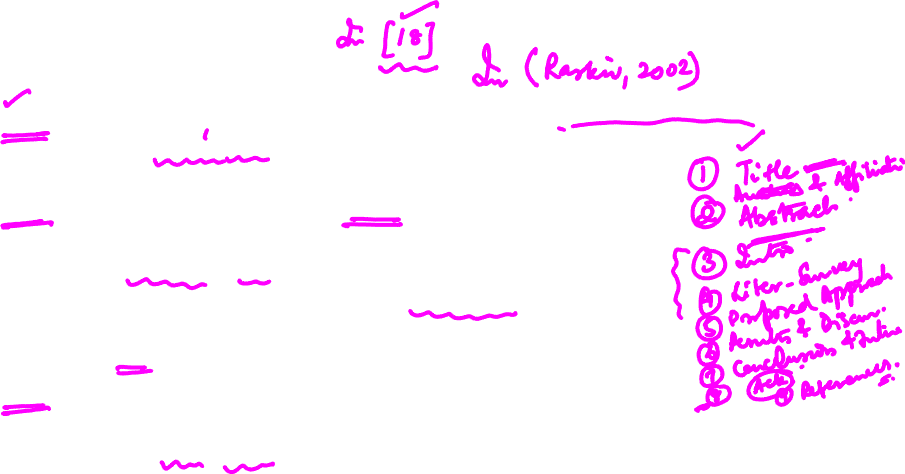 In [18]
In (Raskin, 2002)
① Title
Authors & Affiliati
② Abstract.
③ Intro.
④ Liter. Survey
⑤ Proposed Approach
⑥ Results & Discu.
⑦ Conclusions &
⑧ Ack. ⑨ References.